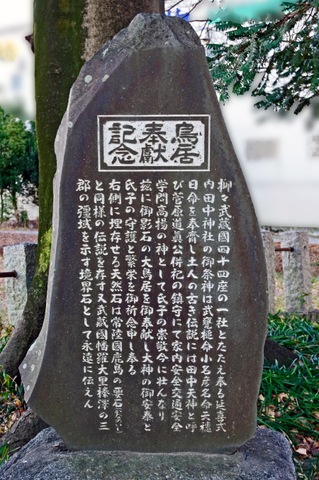 鳥居
奉献
記念
抑々武蔵國四十四座の一社とたたえ奉る延喜式
内田中神社の御祭神は武甕槌命少名彦名命天穂
日命を奉斎し土人の古き伝説には田中天神と呼
び菅原道真公併祀の鎮守にて家内安全交通安全
学問高揚の神として氏子の崇敬今に壮んなり
茲に御影石の大鳥居を御奉献し大神の御安泰と
氏子の守護と繁栄を御祈念申し奉る
右側に埋存せる天然石は常陸國鹿島の要石
と同様の伝説を存す又武蔵國幡羅大里榛沢の三
郡の彊域を示す境界石として永遠に伝えん